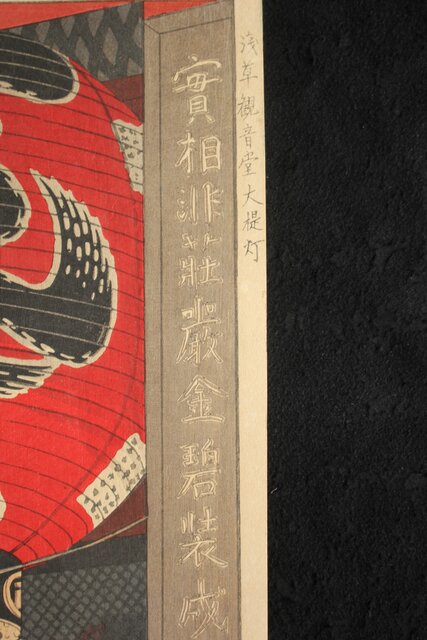 浅草観音堂大提灯
實相非莊嚴金碧装成